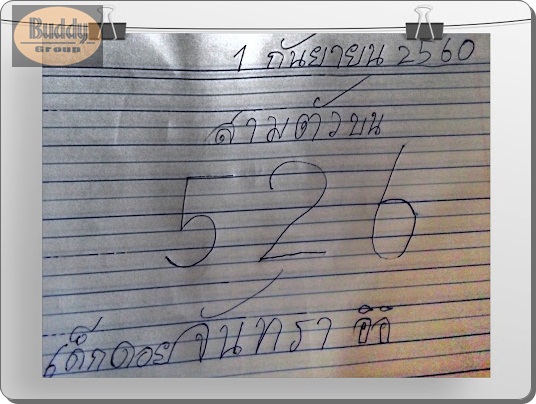 Buddy
Group
1 กันยายน 2560
สามตัวบน
526
เด็กดอยจันทรา อิอิ